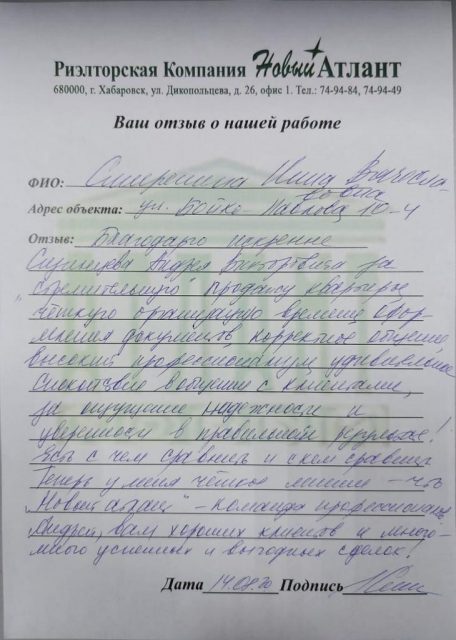 Риэлторская Компания Новый Атлант
680000, г. Хабаровск, ул. Дикопольцева, д. 26, офис 1. Тел.: 74-94-84, 74-94-49
Ваш отзыв о нашей работе
ФИО: Нина Вячесла-
вовна
Адрес объекта: ул. Бойко-Павлова 10-4
Отзыв: Благодарю искренне
Андрея Викторовича за
"стремительную" продажу квартиры
чёткую организацию времени офор-
мления документов корректное общение,
высокий профессионализм удивительное
спокойствие в общении с клиентами,
за ощущение надежности и
уверенности в правильном!
Есть с чем сравнить и с кем сравнить
Теперь у меня чёткое мнение - что
"Новый атлант" - команда профессионалов
Андрей, вам хороших клиентов и много-
много успешных и выгодных сделок!
Дата 14.08.20 Подпись